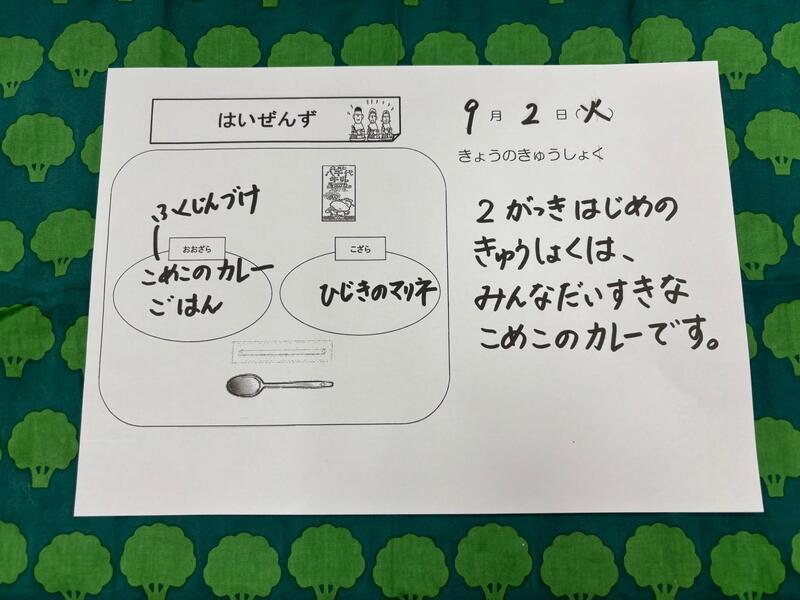 はいぜんず
9月2日(火)
きょうのきゅうしょく
ふくじんづけ
おおざら
こめこのカレー
ごはん
こざら
ひじきのマリネ
八千代
牛乳
2がっきはじめの
きゅうしょくは、
みんなだいすきな
こめこのカレーです。